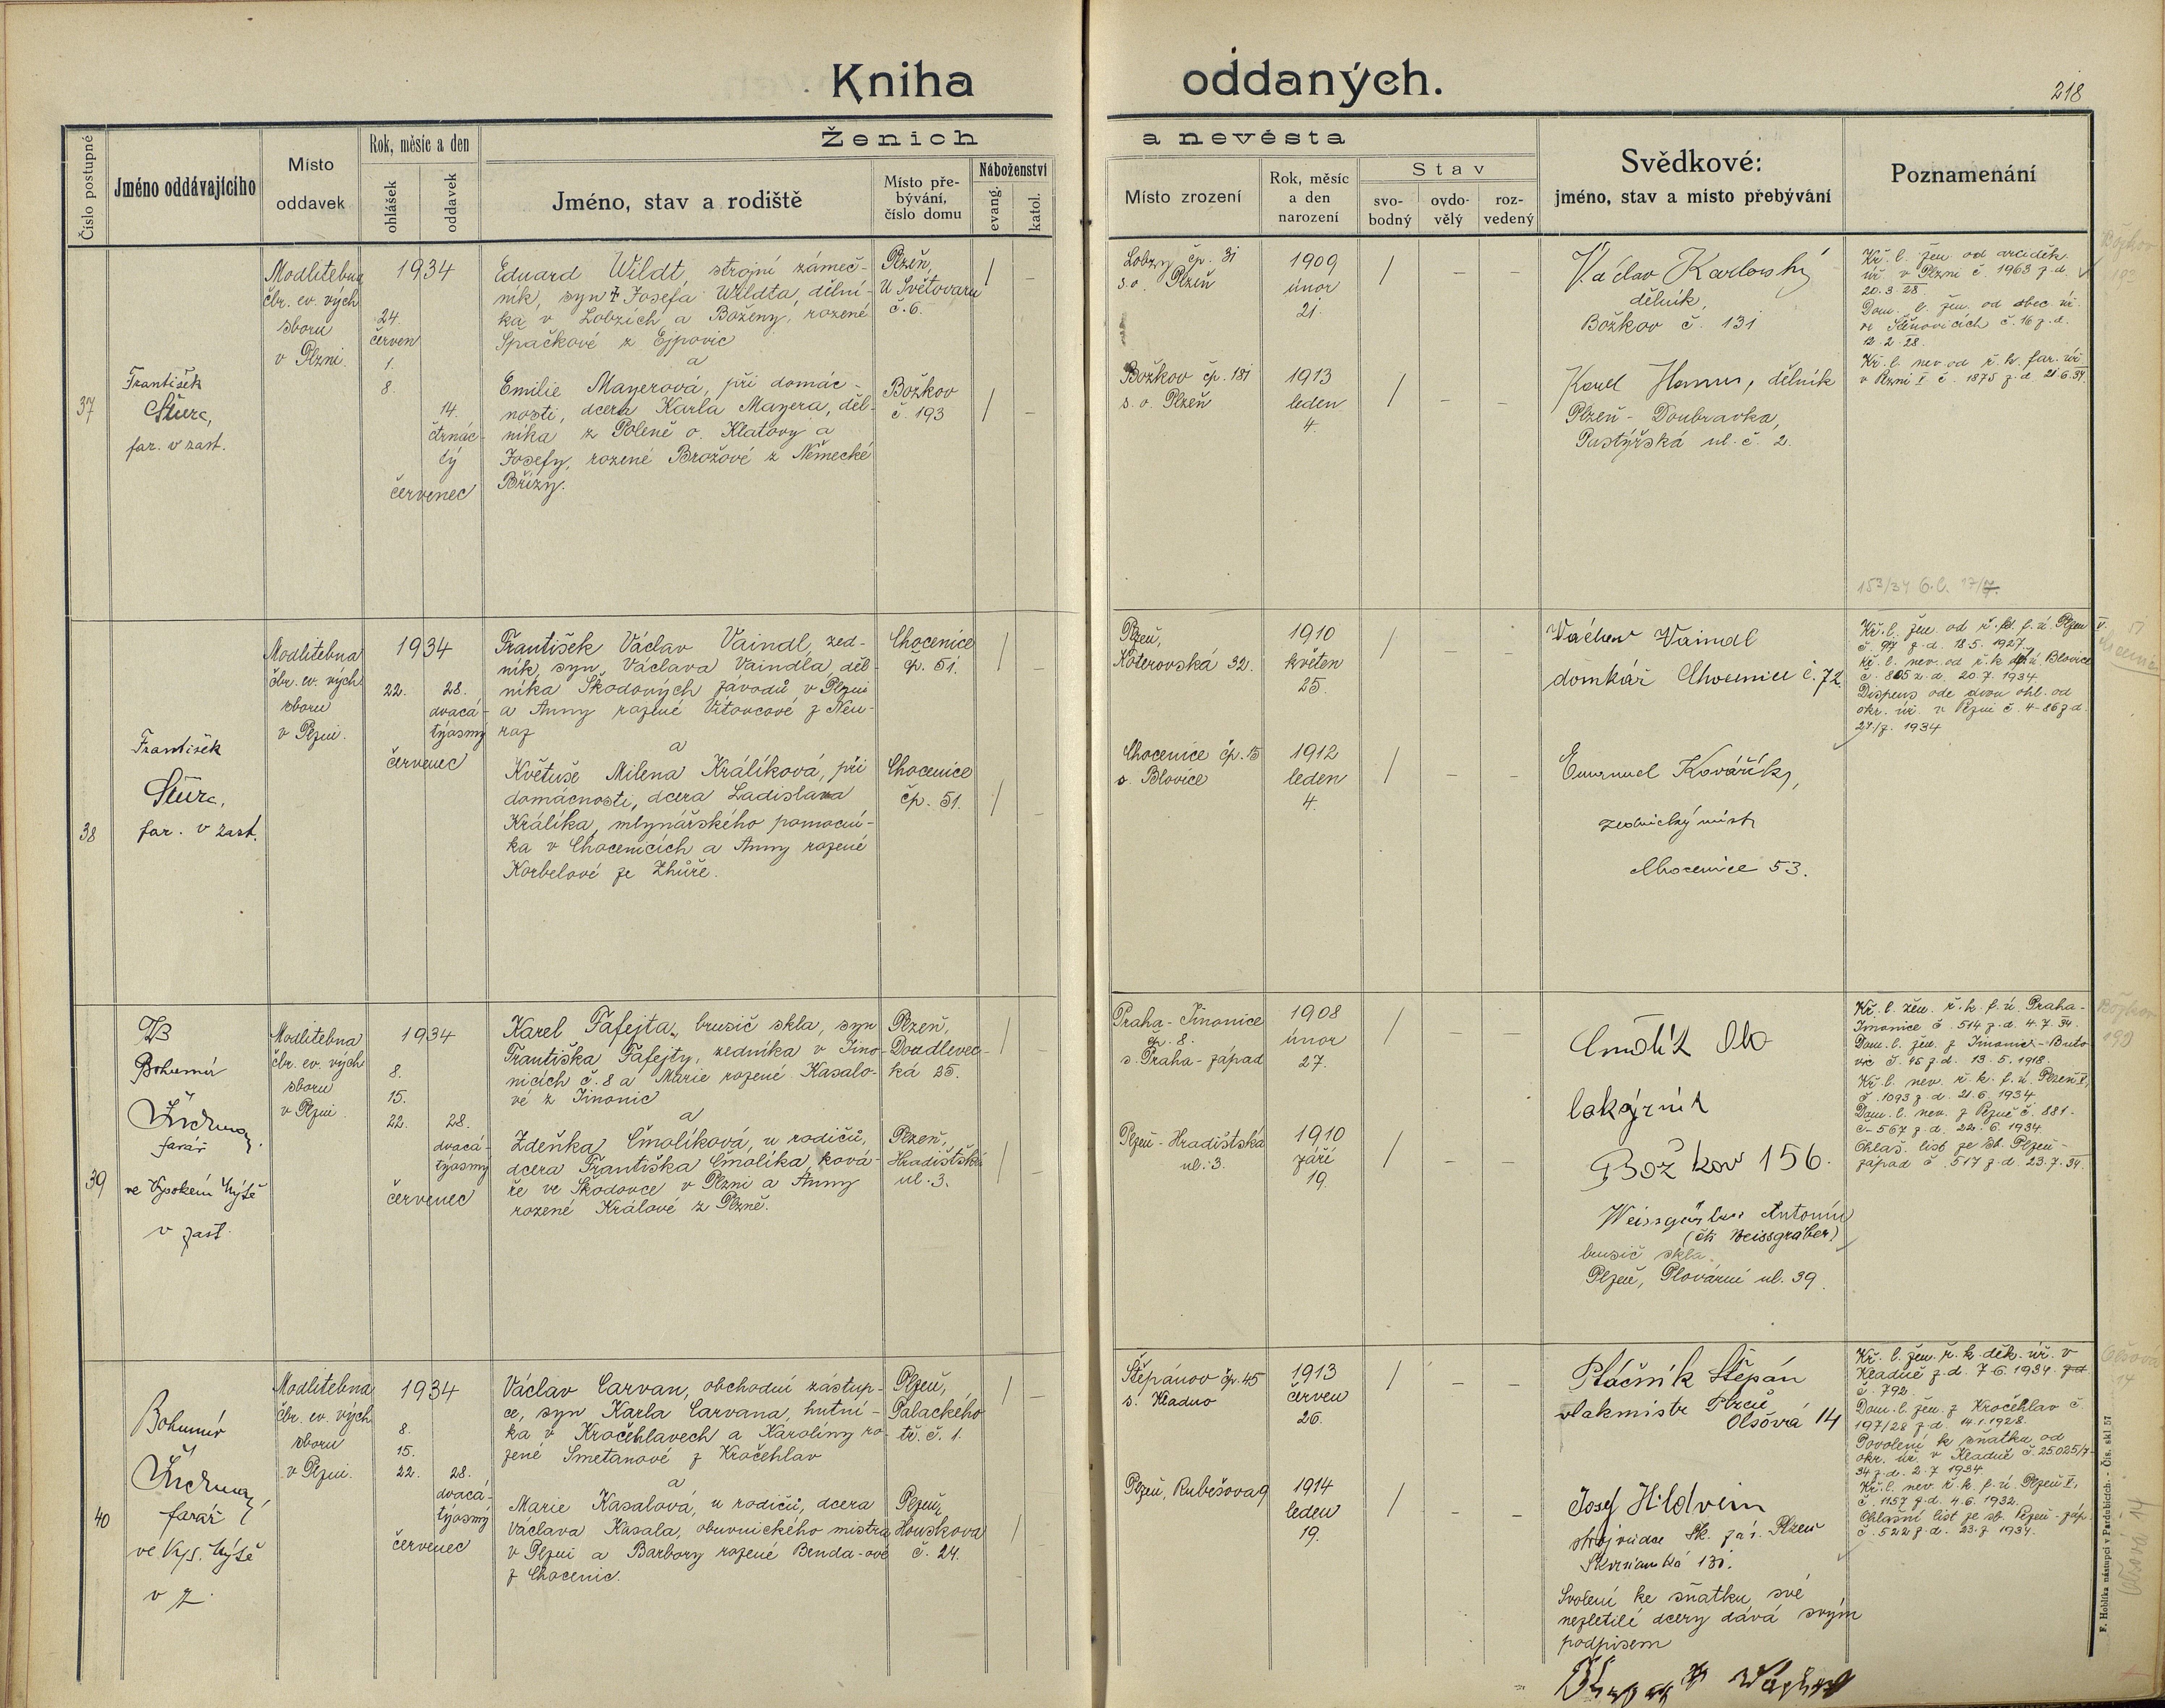 Kniha oddaných.
218
Číslo postupné
Jméno oddávajícího
Místo
oddavek
Rok, měsíc a den
ohlášek
oddavek
Ženich a nevěsta
Jméno, stav a rodiště
Místo pře-
bývání,
číslo domu
Náboženství
evang.
katol.
Místo zrození
Rok, měsíc
a den
narození
Stav
svo-
bodný
ovdo-
vělý
roz-
vedený
Svědkové:
jméno, stav a místo přebývání
Poznamenání
37
František
Šturc,
far. v zast.
Modlitebna
čbr. ev. vých
sboru
v Plzni.
1934
24.
červen
1.
8.
14.
čtrnác-
tý
červenec
Eduard Wildt, strojní zámeč-
ník, syn † Josefa Wildta, dělní-
ka v Lobzích a Boženy, rozené
Špačkové z Ejpovic
a
Emilie Mayerová, při domác-
nosti, dcera Karla Mayera, děl-
níka z Poleně o. Klatovy a
Josefy, rozené Brožové z Německé
Břízy.
Plzeň,
U Světovaru
č. 6.
Božkov
č. 193
Lobzy čp. 31
s.o. Plzeň
1909
únor
21.
Božkov čp. 181
s. o. Plzeň
1913
leden
4.
Václav Karlovský
dělník,
Božkov č. 131
Karel Hamus, dělník
Plzeň - Doubravka,
Pastýřská ul. č. 2.
Kř. l. žen. od arciděk.
úř. v Plzni č. 1963 z d.
20. 3. 28.
Dom. l. žen. od obec. úř.
ve Štěnovicích č. 16 z. d.
12. 2. 28.
Kř. l. nev. od ř. k. far. úř.
v Plzni I č. 1875 z d. 21. 6. 34.
153/34 6.l. 17/7.
Božkov
193
38
František
Šturc,
far. v zast.
Modlitebna
čbr. ev. vých
sboru
v Plzni.
1934
22. 28.
dvacá-
týosmý
červenec
František Václav Vaindl, zed-
ník, syn Václava Vaindla, děl-
níka Škodových závodů v Plzni
a Anny rozené Vítovcové z Neu-
raz
a
Květuše Milena Králíková, při
domácnosti, dcera Ladislava
Králíka, mlynářského pomocní-
ka v Chocenicích a Anny rozené
Korbelové ze Zhůře.
Chocenice
čp. 51.
Chocenice
čp. 51.
Plzeň,
Koterovská 32.
1910
květen
25.
Chocenice čp. 15
o. Blovice
1912
leden
4.
Václav Vaindl
domkář Chocenice č. 72
Emanuel Kovářík,
zednický mistr
Chocenice 53.
Kř. l. žen. od ř. k. f. ú. Plzeň V.
č. 917 z d. 18. 5. 1927.
Kř. l. nev. od ř. k. děk. ú. Blovice
č. 805 z. d. 20. 7. 1934.
Dispens ode dvou ohl. od
okr. úř. v Plzni č. 4-86 z d.
27/7. 1934
39
Bohumír
farář
ve Vysokém Mýtě
v zast.
Modlitebna
čbr. ev. vých
sboru
v Plzni.
1934
8.
15.
22. 28.
dvacá-
týosmý
červenec
Karel Fafejta, brusič skla, syn
Františka Fafejty, zedníka v Jino-
nicích č. 8 a Marie rozené Kasalo-
vé z Jinonic
a
Zdeňka Čmolíková, u rodičů,
dcera Františka Čmolíka, ková-
ře ve Škodovce v Plzni a Anny
rozené Králové z Plzně.
Plzeň,
Doudlevec-
ká 25.
Plzeň,
Hradištská
ul. 3.
Praha - Jinonice
čp. 8.
s. Praha - západ
1908
únor
27.
Plzeň - Hradištská
ul. 3.
1910
září
19.
lakýrník
Božkov 156.
Antonín
(čti Weissgräber)
brusič skla,
Plzeň, Plovární ul. 39.
Kř. l. žen. ř. k. f. ú. Praha-
Jinonice č. 514 z d. 4. 7. 34.
Dom. l. žen. z Jinonic - Buto
vic č. 95 z d. 13. 5. 1918.
Kř. l. nev. ř. k. f. ú. Plzeň I,
č. 1093 z d. 21. 6. 1934.
Dom. l. nev. z Plzně č. 881-
č-567 z d. 22. 6. 1934.
Ohláš. list ze sb. Plzeň-
západ č. 517 z d. 23. 7. 34.
Božkov
199
40
Bohumír
farář
ve Vys. Mýtě
v z.
Modlitebna
čbr. ev. vých
sboru
v Plzni.
1934
8.
15.
22. 28.
dvacá-
týosmý
červenec
Václav Carvan, obchodní zástup-
ce, syn Karla Carvana, hutní-
ka v Kročehlavech a Karolíny ro-
zené Smetanové z Kročehlav
a
Marie Kasalová, u rodičů, dcera
Václava Kasala, obuvnického mistra
v Plzni a Barbory rozené Brnda-ové
z Chocenic.
Plzeň,
Palackého
tř. č. 1.
Plzeň,
Houskova
č. 24.
Štěpánov čp. 45
s. Kladno
1913
červen
26.
Plzeň, Rubešova 9
1914
leden
19.
Ptáčník Štěpán
vlakmistr Plzeň
Olšová 14
Josef Hildvein
Škvrňanská 130.
Svolení ke sňatku své
nezletilé dcery dává svým
podpisem
Kř. l. žen. ř. k. děk. úř. v
Kladně z. d. 7. 6. 1934. z d.
č. 792.
Dom. l. žen. z Kročehlav č.
197/28 z d. 14. 1. 1928.
Povolení k sňatku od
okr. úř. v Kladně č. 25.025/7-
34 z d. 2. 7. 1934.
Kř. l. nev. ř. k. f. ú. Plzeň I,
č. 1157 z d. 4. 6. 1932.
Ohlašní list ze sb. Plzeň - záp.
č. 522 z d. 23. 7. 1934.
Olšová
14
Olšová 14
F. Hoblíka nástupci v Pardubicích. - Čís. skl 57